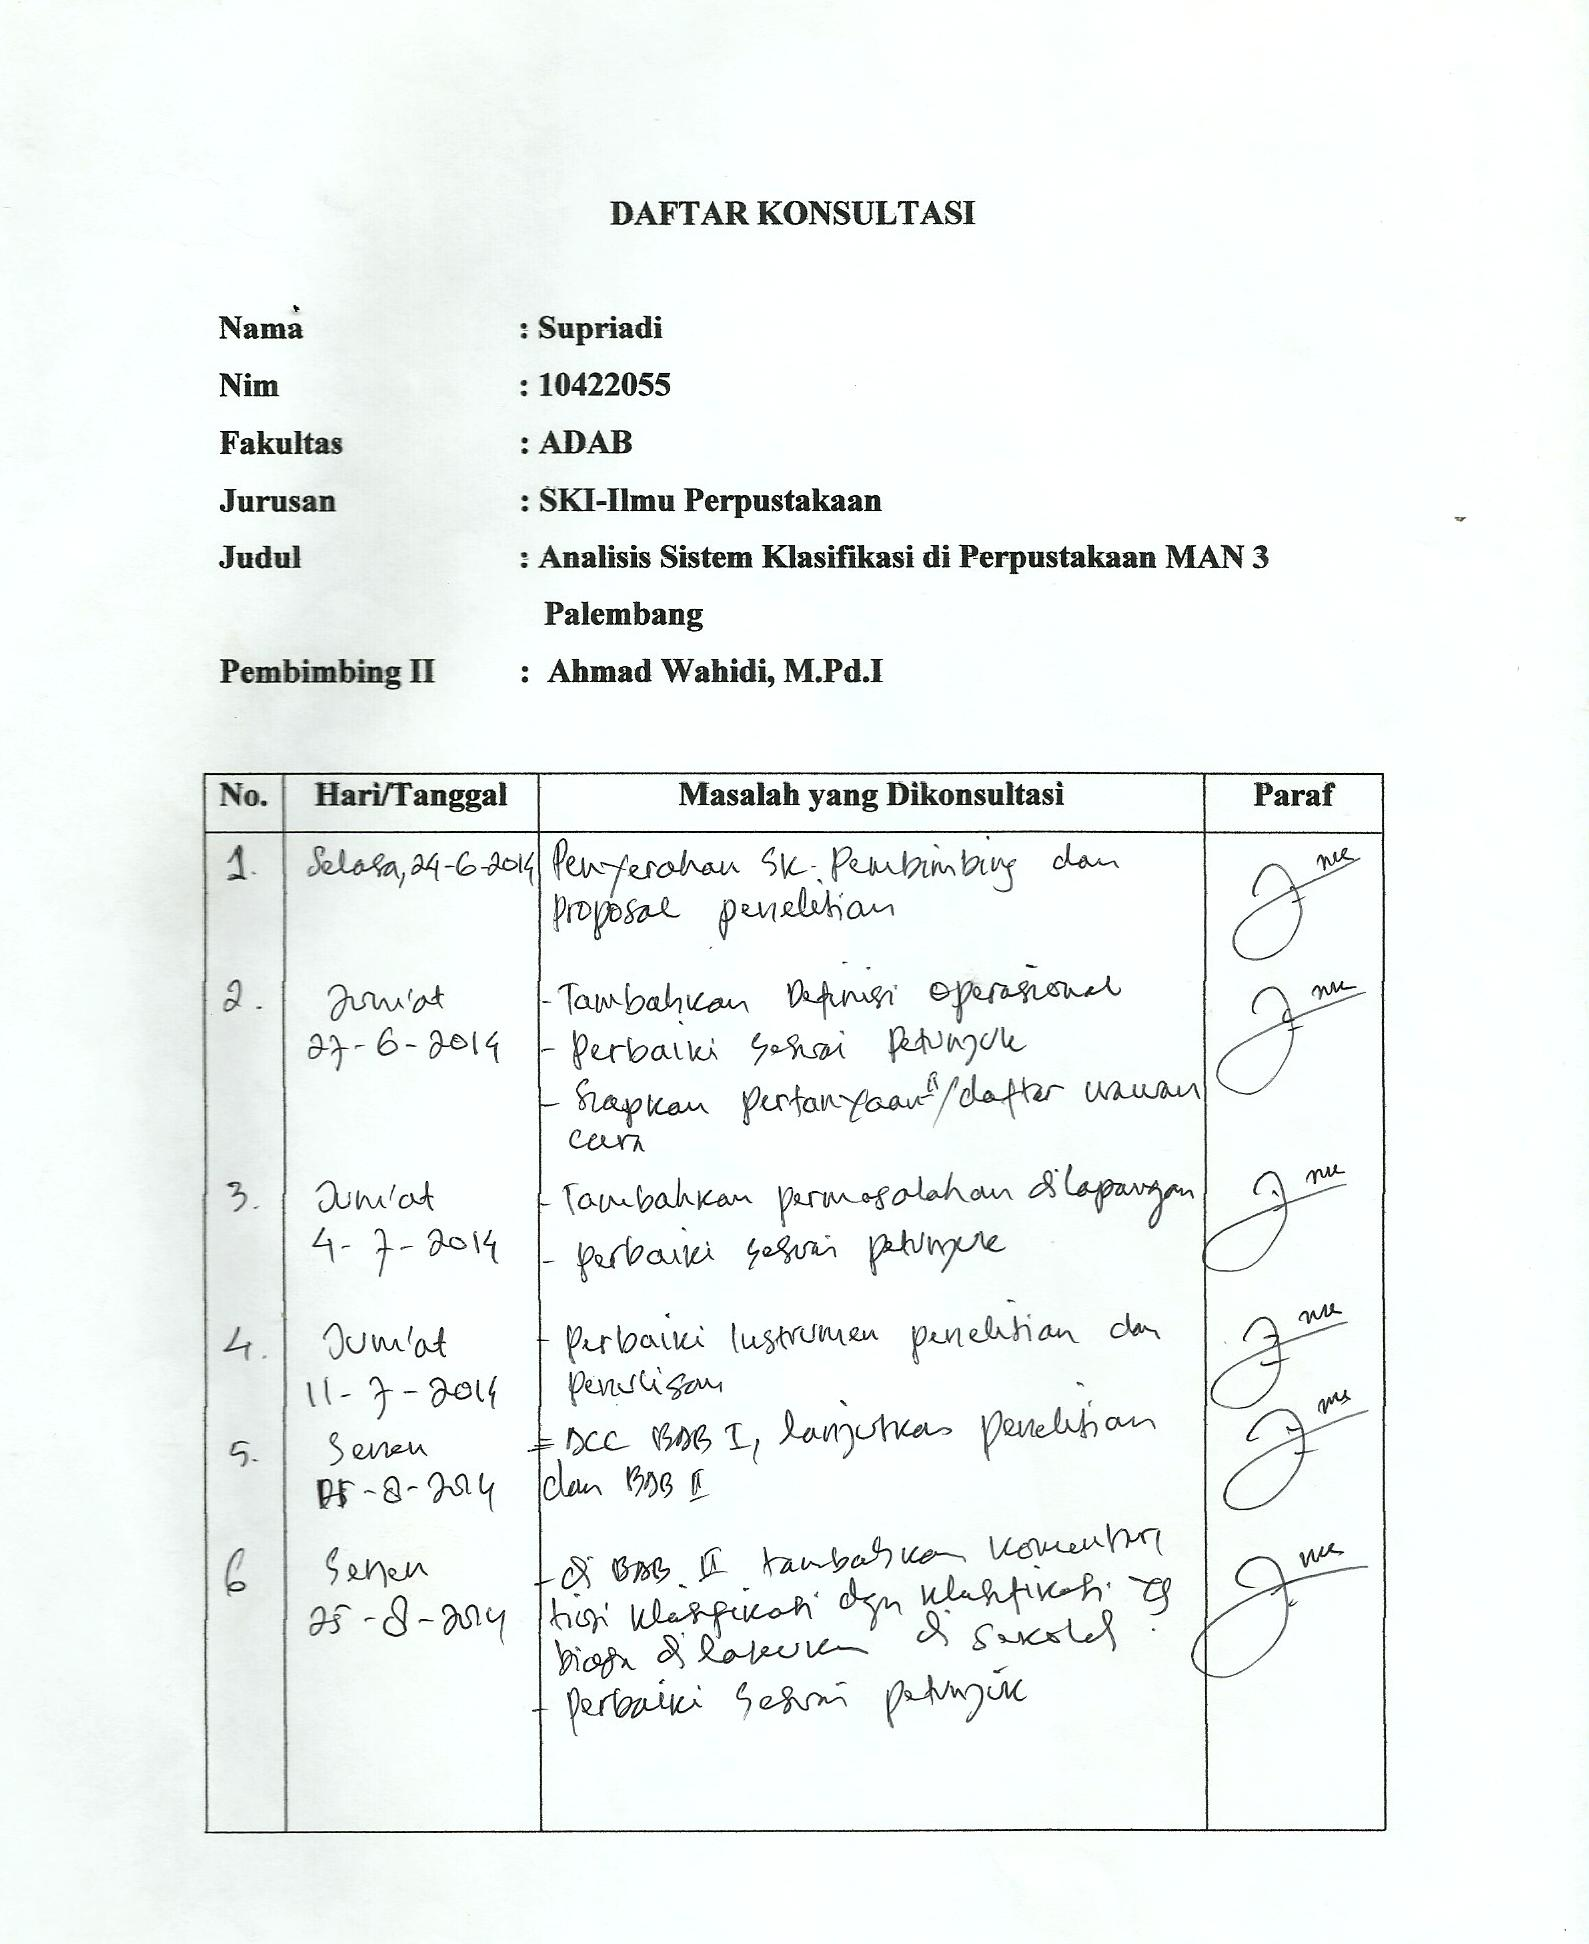 DAFTAR KONSULTASI
Nama : Supriadi
Nim : 10422055
Fakultas : ADAB
Jurusan : SKI-Ilmu Perpustakaan
Judul : Analisis Sistem Klasifikasi di Perpustakaan MAN 3
Palembang
Pembimbing II : Ahmad Wahidi, M.Pd.I
No. Hari/Tanggal Masalah yang Dikonsultasi Paraf
1. Selasa, 24-6-2014 Penyerahan SK. Pembimbing dan
Proposal penelitian
2. Jum'at - Tambahkan Definisi Operasional
27-6-2014 - Perbaiki sesuai Petunjuk
- Siapkan pertanyaan"/daftar wawan
cara
3. Jum'at - Tambahkan permasalahan dilapangan
4-7-2014 - perbaiki sesuai petunjuk
4. Jum'at - Perbaiki Instrumen penelitian dan
11-7-2014 penulisan
5. Senen = ACC BAB I, lanjutkan penelitian
-8-2014 dan BAB II
6 Senen - di BAB II tambahkan komentar
25-8-2014 klasifikasi dgn klasifikasi yg
biasa dilakukan di sekolah.
- Perbaiki sesuai petunjuk